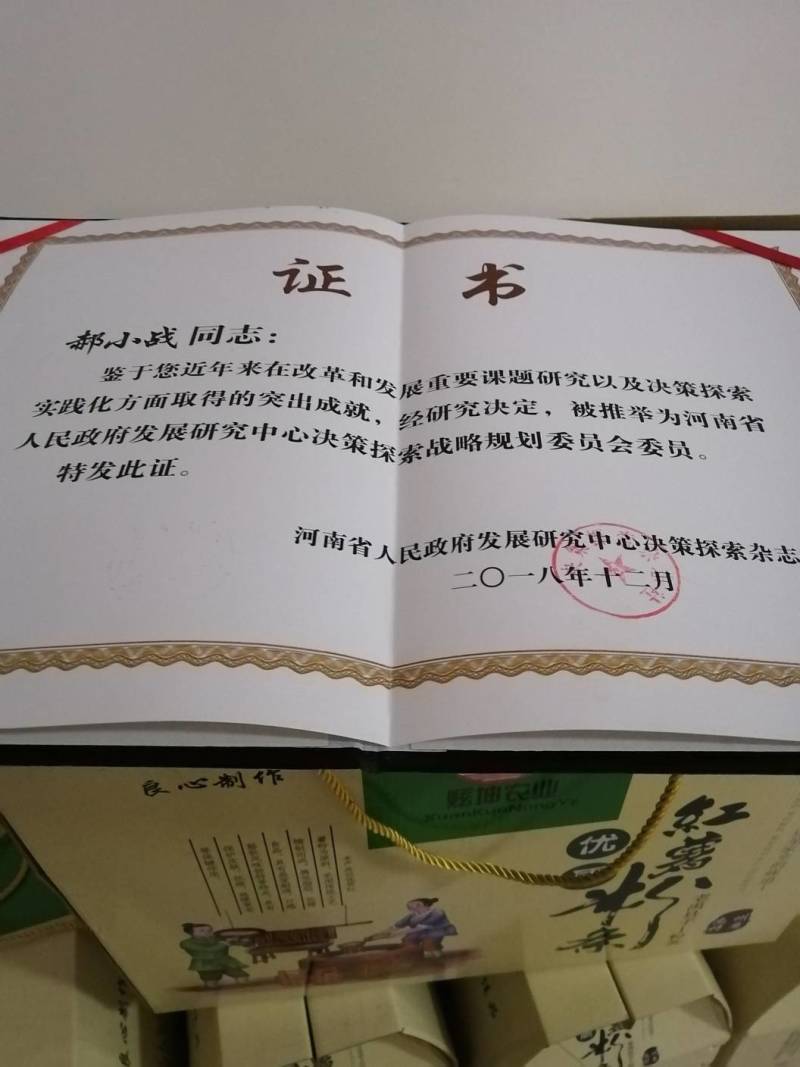 证 书
郝小战 同志：
鉴于您近年来在改革和发展重要课题研究以及决策探索
实践化方面取得的突出成就，经研究决定，被推举为河南省
人民政府发展研究中心决策探索战略规划委员会委员。
特发此证。
河南省人民政府发展研究中心决策探索杂志
二〇一八年十二月
良心制作
炫坤农业
XuanKunNongYe
優
紅薯